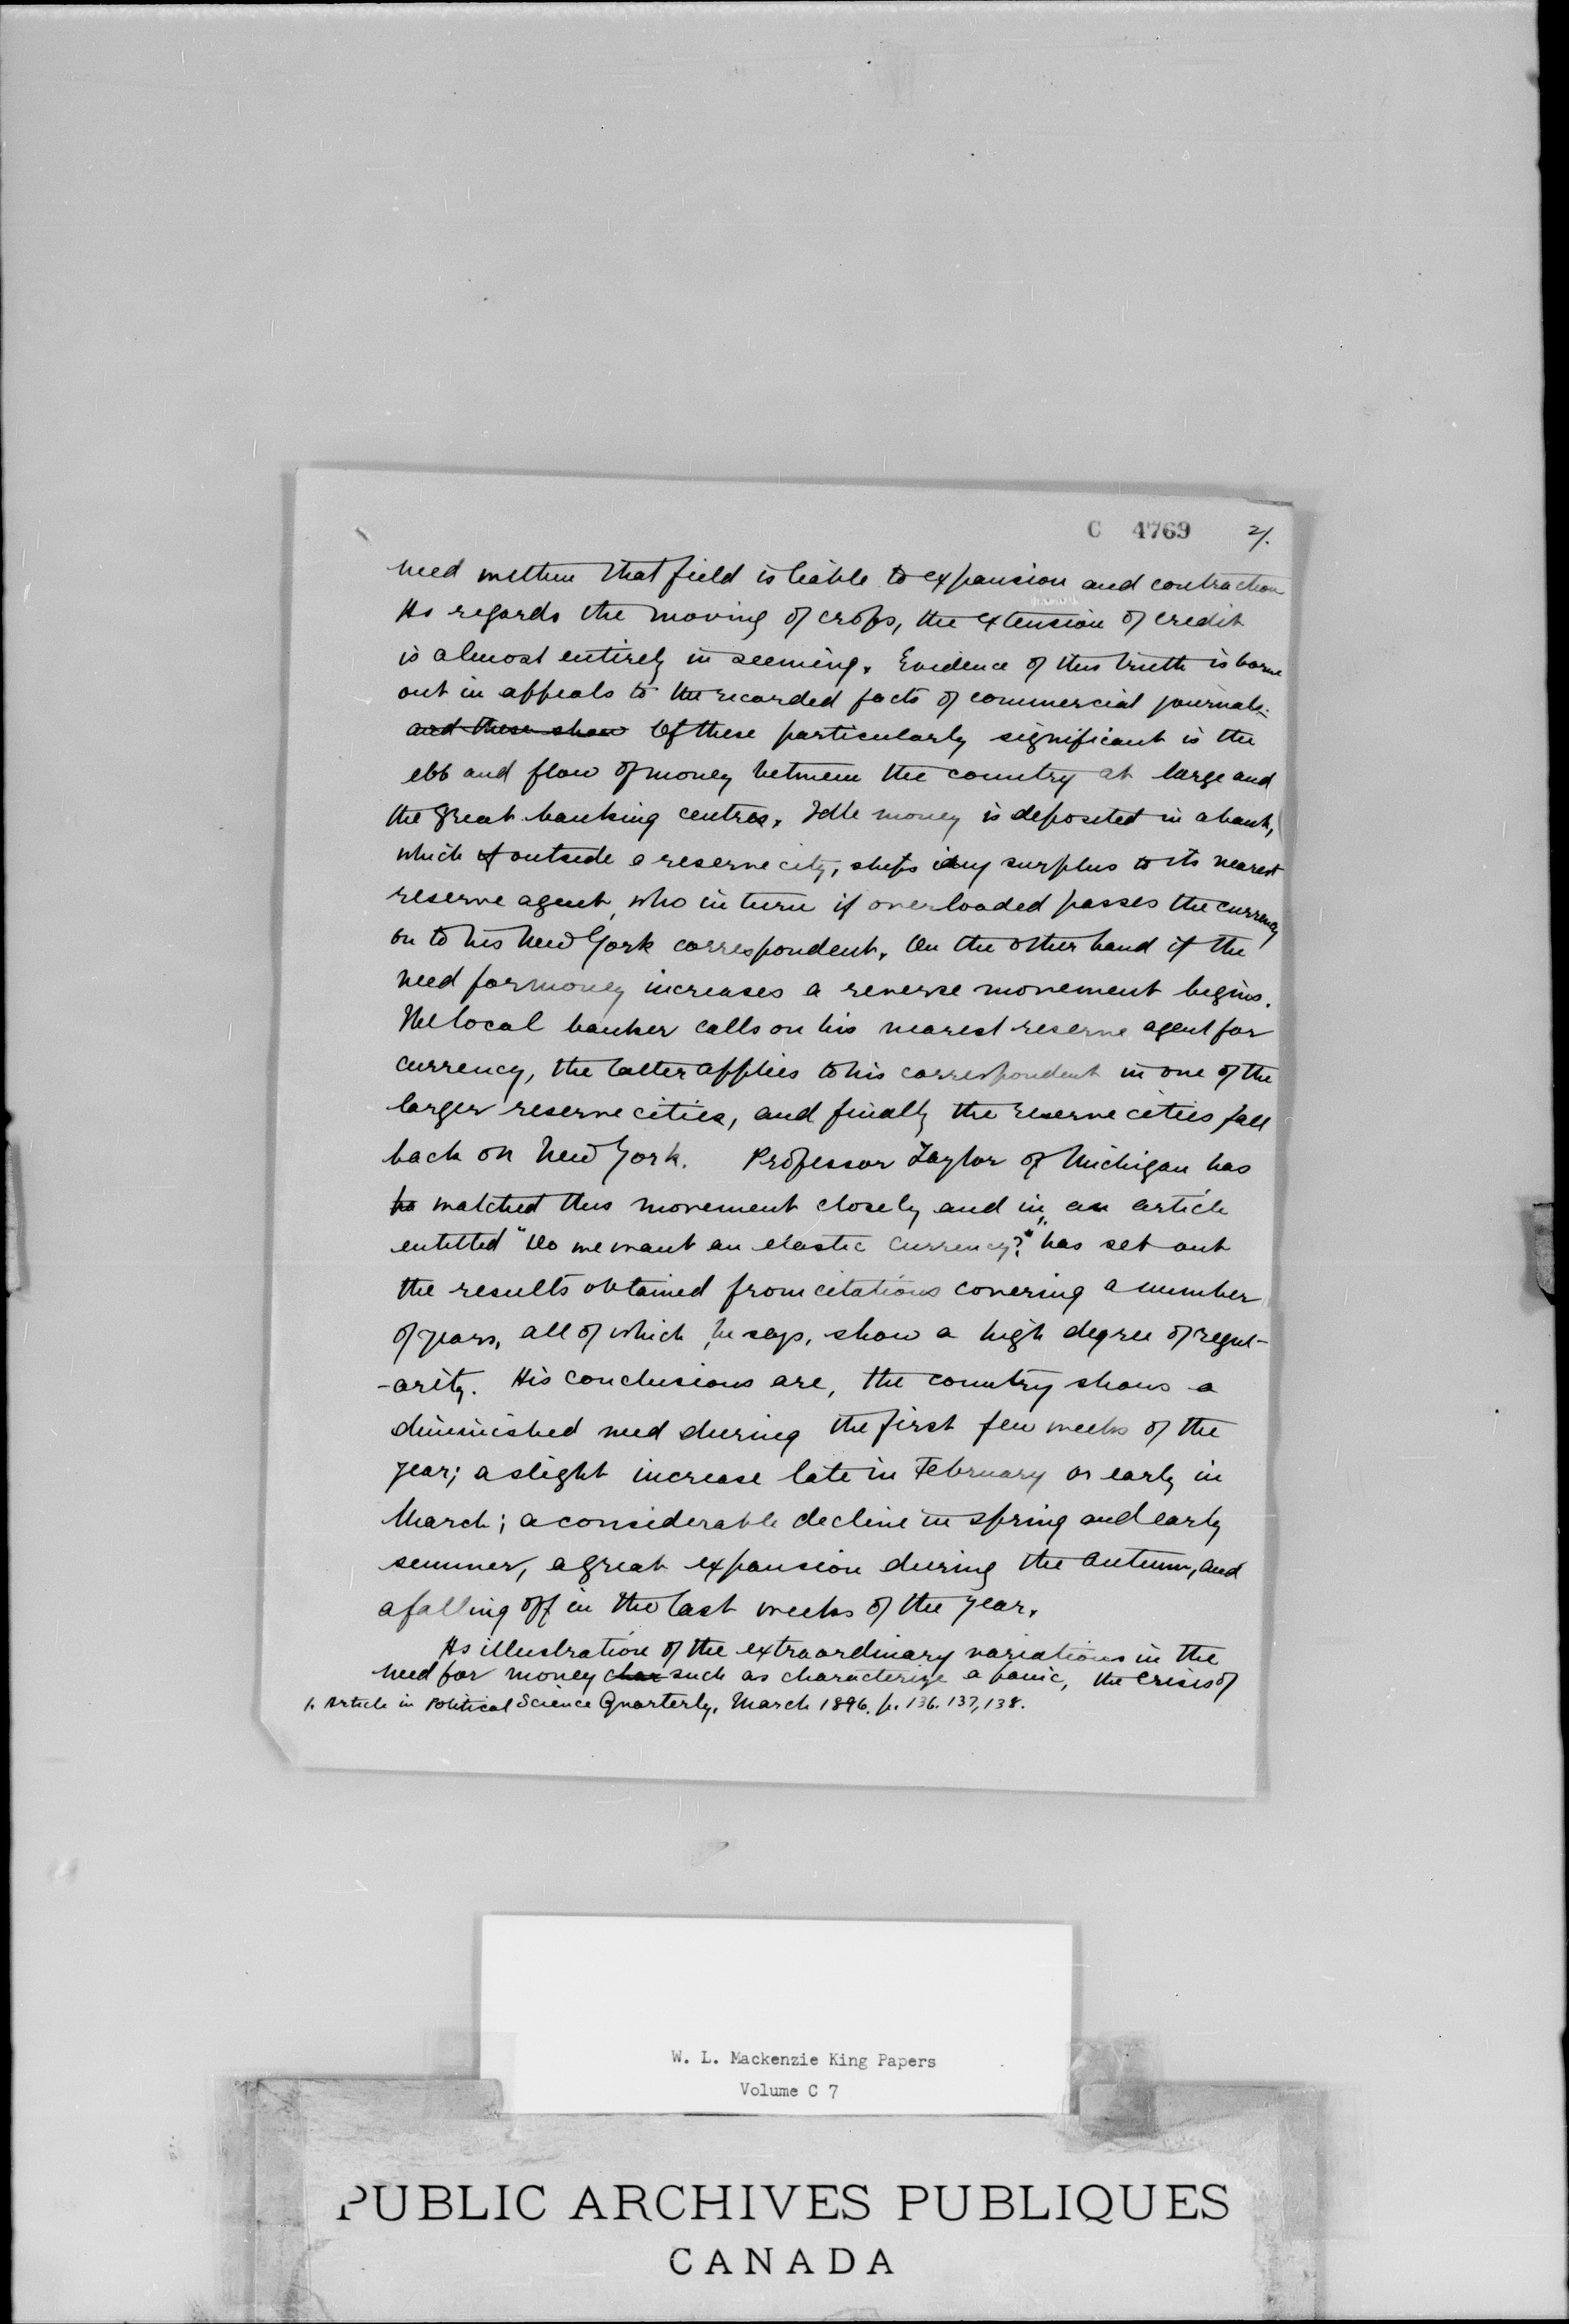 C 4769 21.
need within that field is liable to expansion and contraction
As regards the moving of crops, the extension of credit
is almost entirely in seeming. Evidence of this truth is borne
out in appeals to the recorded facts of commercial journals.
and these show Of these particularly significant is the
ebb and flow of money between the country at large and
the great banking centres. Idle money is deposited in a bank,
which if outside a reserve city, ships any surplus to its nearest
reserve agent, who in turn if overloaded passes the currency
on to his New York correspondent. On the other hand if the
need for money increases a reverse movement begins.
The local banker calls on his nearest reserve agent for
currency, the latter applies to his correspondent in one of the
larger reserve cities, and finally the reserve cities fall
back on New York. Professor Taylor of Michigan has
ha watched this movement closely and in an article
entitled "Do we want an elastic currency?" has set out
the results obtained from citations covering a number
of years, all of which, he says, show a high degree of regul-
-arity. His conclusions are, the country shows a
diminished need during the first few weeks of the
year; a slight increase late in February or early in
March; a considerable decline in spring and early
summer, a great expansion during the autumn, and
a falling off in the last weeks of the year.
As illustration of the extraordinary variations in the
need for money char such as characterize a panic, the crisis of
1. Article in Political Science Quarterly, March 1896. p. 136. 137, 138.
W. L. Mackenzie King Papers
Volume C 7
PUBLIC ARCHIVES PUBLIQUES
CANADA